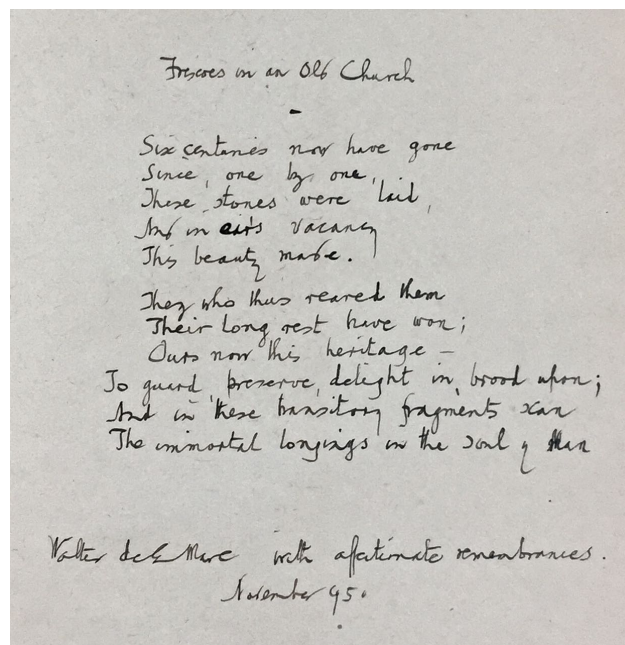 Frescoes in an Old Church
-
Six centuries now have gone
Since, one by one,
These stones were laid,
And in air's vacancy
This beauty made.
They who thus reared them
Their long rest have won;
Ours now this heritage —
To guard, preserve, delight in, brood upon;
And in these transitory fragments scan
The immortal longings in the soul of Man
Walter de la Mare with affectionate remembrances.
November 45.